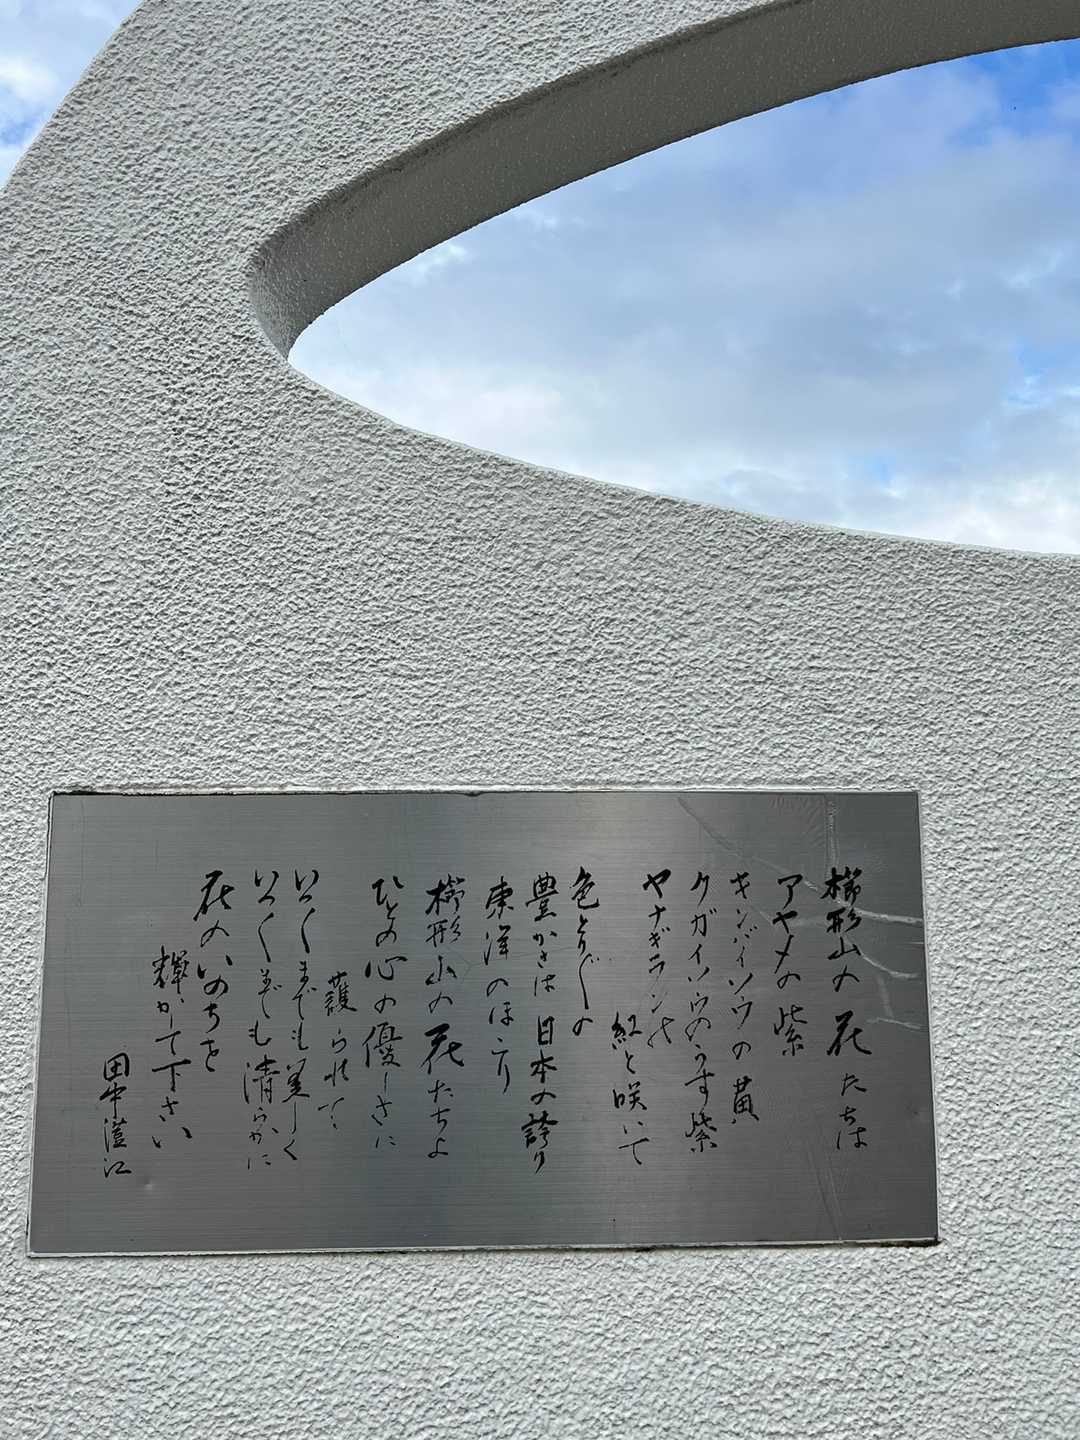 櫛形山の花たちは
アヤメの紫
キンバイソウの黄
クガイソウのうす紫
ヤナギランの
紅と咲いて
色とりどりの
豊かさは日本の誇り
東洋のほこり
櫛形山の花たちよ
ひとの心の優しさに
護られて
いつまでも美しく
いつまでも清らかに
花のいのちを
輝かて下さい
田中澄江